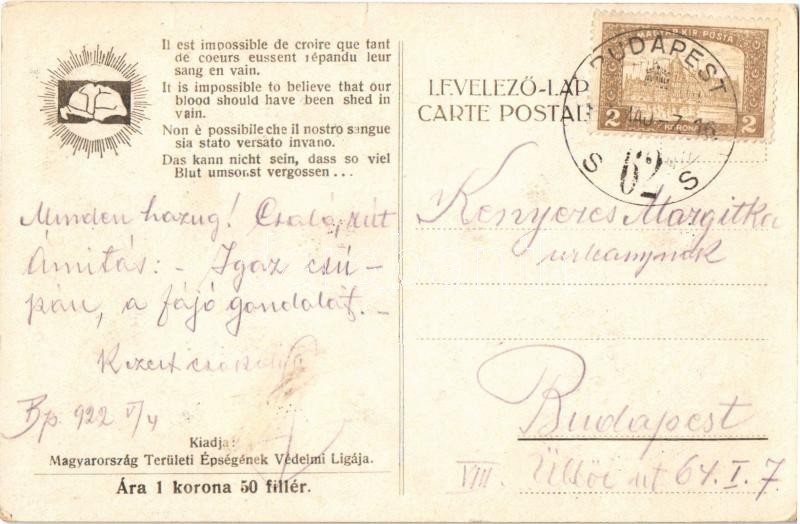 Il est impossible de croire que tant
de coeurs eussent répandu leur
sang en vain.
It is impossible to believe that our
blood should have been shed in
vain.
Non è possibile che il nostro sangue
sia stato versato invano.
Das kann nicht sein, dass so viel
Blut umsonst vergossen ...
Minden hazug! Csaló, rút
Ámítás: – Igaz csu-
pán, a fájó gondolat. –
Kezeit csókolja
Bp. 922 V/4
Kiadja:
Magyarország Területi Épségének Védelmi Ligája.
Ára 1 korona 50 fillér.
LEVELEZŐ-LAP
CARTE POSTAL
MAGYAR KIR. POSTA
2 KORONA 2
BUDAPEST
MAJ – 7
S 62 S
Kenyeres Margitka
urleánynak
Budapest
VIII. Üllői út 64. I. 7.